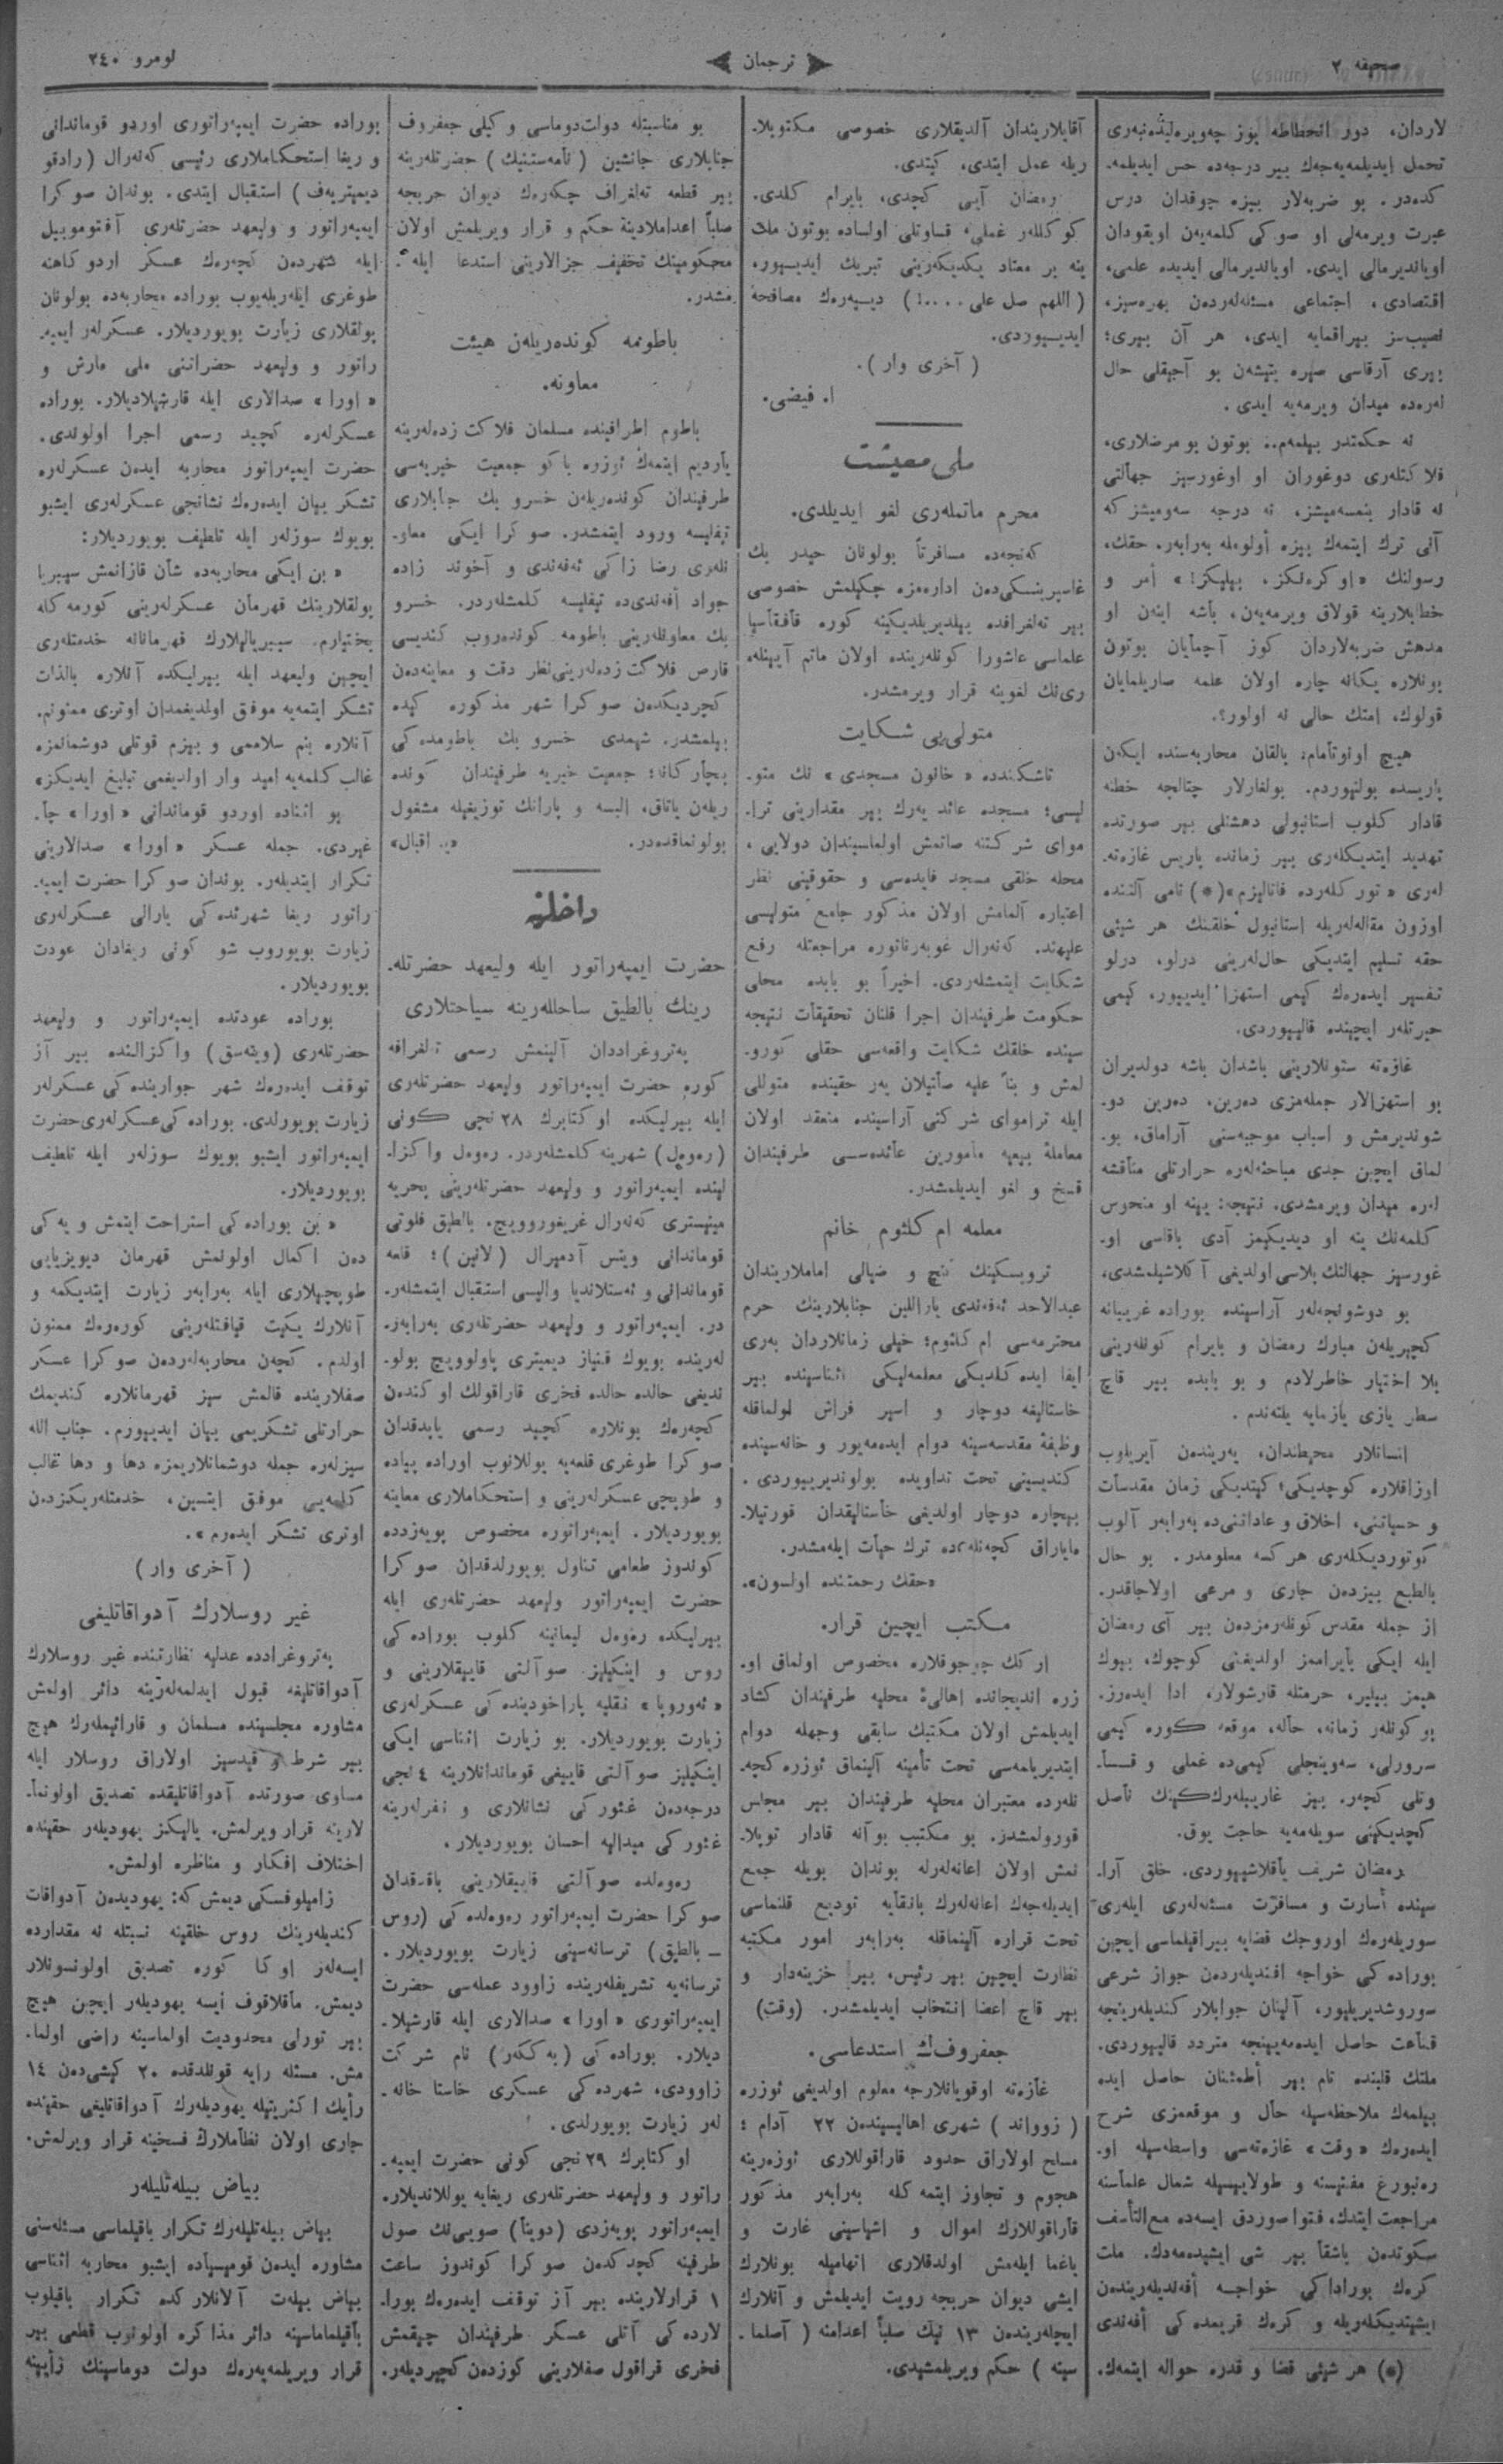 صحیفه ٢
ترجمان
نومرو ٢٤٠
لاردان، دور انحطاطه یوز چه‌ویره‌لیدنبه‌ری
تحمل ایدیلمه‌یه‌جه‌ك بیر درجه‌ده حس ایدیلمه‌ـ
كده‌در. بو ضربه‌لار بیزه جوقدان درس
عبرت ویرمه‌لی او صوكی كلمه‌یه‌ن اویقودان
اویاندیرمالی ایدی. اویاندیرمالی ایدیده علمی،
اقتصادی، اجتماعی مسئله‌لردن بهره‌سیز،
نصیب‌سز بیراقمایه ایدی، هر آن بیری؛
بیری آرقاسی صیره یتیشه‌ن بو آجیقلی حال
لره‌ده میدان ویرمه‌یه ایدی.
نه حكمتدر بیلمه‌م.. بوتون بو مرضلاری،
فلاكتله‌ری دوغوران او اوغورسیز جهالتی
نه قادار بنمسه‌میشز، نه درجه سه‌ومیشز كه
آنی ترك ایتمه‌ك بیزه أولومله به‌رابه‌ر. حقك،
رسولنك «اوكره‌نكز. بیلیكز!» أمر و
خطابلارینه قولاق ویرمه‌یه‌ن، باشه اینه‌ن او
مدهش ضربه‌لاردان كوز آچمایان بوتون
بونلاره یكانه چاره اولان علمه صاریلمایان
قولوك، امتك حالی نه اولور؟.
هیچ اونوتأمام؛ بالقان محاربه‌سنده ایكه‌ن
پاریسده بولنیوردم. بولغارلار چتالجه خطنه
قادار كلوب استانبولی دهشتلی بیر صورتده
تهدید ایتدیكله‌ری بیر زمانده پاریس غازه‌ته‌ـ
له‌ری «توركله‌رده فاتالیزم»(*) نامی آلتنده
اوزون مقاله‌له‌ریله استانبول خلقنك هر شیئی
حقه تسلیم ایتدیكی حال‌له‌رینی درلو، درلو
تفسیر ایده‌ره‌ك كیمی استهزا ایدییور، كیمی
حیرتله‌ر ایچینده قالییوردی.
غازه‌ته ستونلارینی باشدان باشه دولدیران
بو استهزالار جمله‌مزی ده‌رین، ده‌رین دو.
شوندیرمش و اسباب موجبه‌سنی آراماق، بو.
لماق ایچین جدی مباحثه‌له‌ره حرارتلی مناقشه
لره میدان ویرمشدی. نتیجه: یینه او منحوس
كلمه‌نك ینه او دیدیكیمز آدی باقاسی او.
غورسیز جهالتك بلاسی اولدیغی آكلاشیلمشدی،
بو دوشونجه‌له‌ر آراسینده بوراده غریبانه
كچیریله‌ن مبارك رمضان و بایرام كونله‌رینی
بلا اختیار خاطرلادم و بو بابده بیر قاچ
سطر یازی یازمایه یلته‌ندم.
انسانلار محیطندان، یه‌ریندن آیریلوب
اوزاقلاره كوچدیكی؛ كیتدیكی زمان مقدسات
و حسیاتنی، اخلاق و عاداتنی‌ده به‌رابه‌ر آلوب
كوتوردیكله‌ری هركسه معلومدر. بو حال
بالطبع بیزده‌ن جاری و مرعی اولاجاقدر.
از جمله مقدس كونله‌رمزده‌ن بیر آی رمضان
ایله ایكی بأیرأممز اولدیغنی كوچوك، بیوك
هیمز بیلیر، حرمتله قارشولار، ادا ایده‌رز.
بو كونله‌ر زمانه، حاله، موقعه كوره كیمی
سرورلی، سه‌وینجلی كیمی‌ده غملی و قسا‌ـ
وتلی كچه‌ر. بیز غاریبله‌رك‌كینك نأصل
كچدیكینی سویله‌مه‌یه حاجت یوق.
رمضان شریف یأقلاشییوردی. خلق آرا‌ـ
سینده أسارت و مسافرت مسئله‌له‌ری ایله‌ری
سوریله‌ره‌ك اوروجك قضایه بیراقیلماسی ایچین
بوراده‌كی خواجه افندیله‌رده‌ن جواز شرعی
سوروشدیریلیور، آلینان جوابلار كندیله‌رینجه
قنأعت حاصل ایده‌مه‌یینجه متردد قالییوردی.
ملتك قلبنده تام بیر أطمئنان حاصل ایده
بیلمه‌ك ملاحظه‌سیله حال و موقعمزی شرح
ایده‌ره‌ك «وقت» غازه‌ته‌سی واسطه‌سیله او.
ره‌نبورغ مفتیسنه و طولاییسیله شمال علمأسنه
مراجعت ایتدك، فتوا صوردق ایسه‌ده مع‌التأسف
سكوتده‌ن باشقا بیر شی ایشیده‌مه‌دك. ملت
كره‌ك بوراداكی خواجه أفه‌ندیله‌ریندن
ایشیتدیكله‌ریله و كره‌ك قریمده‌كی أفه‌ندی
(*) هر شیئی قضا و قدره حواله ایتمه‌ك.
آقایلاریندان آلدیقلاری خصوصی مكتوبلا‌ـ
ریله عمل ایتدی، كیتدی.
رمضان آیی كچدی، بایرام كلدی.
كوكللـه‌ر غملی، قساوتلی اولساده بوتون ملت
ینه بر معتاد یكدیكه‌رینی تبریك ایدییور،
(اللهم صل علی ....!) دییه‌ره‌ك مصافحه
ایدیییوردی.
(آخری وار).
ا. فیضی.
ملی معیشت
محرم ماتمله‌ری لغو ایدیلدی.
كه‌نجه‌ده مسافرتاً بولونان حیدر بك
غاسپرینسكی‌دن اداره‌مزه چكیلمش خصوصی
بیر ته‌لغرافده بیلدیریلدیكینه كوره قافقأسیا
علماسی عاشورا كونله‌رینده اولان ماتم آیینله‌ـ
ری‌نك لغوینه قرار ویرمشدر.
متولی‌یی شكایت
تاشكندده «خاتون مسجدی» نك متو.
لیسی؛ مسجده عائد یه‌رك بیر مقدارینی ترا.
موای شركتنه صاتمش اولماسیندان دولایی،
محله خلقی مسجد فایده‌سی و حقوقینی نظر
اعتباره آلمامش اولان مذكور جامع متولیسی
علیهنه. كه‌نه‌رال غوبه‌رناتوره مراجعتله رفع
شكایت ایتمشله‌ردی. اخیراً بو بابده محلی
حكومت طرفیندان اجرا قلنان تحقیقأت نتیجه
سینده خلقك شكایت واقعه‌سی حقلی كورو.
لمش و بناً علیه صأتیلان یه‌ر حقینده متوللی
ایله تراموای شركتی آراسینده منعقد اولان
معاملهٔ بیعیه مأمورین عائده‌سی طرفیندان
فسخ و لغو ایدیلمشدر.
معلمه ام كلثوم خانم
ترویسكینك كنج و ضیالی اماملاریندان
عبدالاحد ئه‌فه‌ندی یاراللین جنابلارینك حرم
محترمه‌سی ام كلثوم؛ خیلی زمانلاردان به‌ری
ایفا ایده‌كلدیكی معلمه‌لیكی اثناسینده بیر
خاستالیغه دوچار و اسیر فراش اولماقله
وظیفهٔ مقدسه‌سینه دوام ایده‌مه‌یور و خانه‌سینده
كندیسینی تحت تداویده بولوندیرییوردی.
بیچاره دوچار اولدیغی خأستالیقدان قورتیلا.
مایاراق كچه‌نله‌رده ترك حیأت ایله‌مشدر.
«حقك رحمتنده اولسون».
مكتب ایچین قرار.
اركك چوجوقلاره مخصوص اولماق او.
زره اندیجانده اهالیٔ محلیه طرفیندان كشاد
ایدیلمش اولان مكتبك سابقی وجهله دوام
ایتدیریلمه‌سی تحت تأمینه آلینماق ئوزره كچه‌ـ
نله‌رده معتبران محلیه طرفیندان بیر مجلس
قورولمشدر. بو مكتب بوآنه قادار توپلا.
نمش اولان اعانه‌له‌رله بوندان بویله جمع
ایدیله‌جه‌ك اعانه‌له‌رك بانقأیه تودیع قلنماسی
تحت قراره آلینماقله به‌رابه‌ر امور مكتبه
نظارت ایچین بیر رئیس، بیر خزینه‌دار و
بیر قاچ اعضا انتخاب ایدیلمشدر. (وقت)
جعفروف‌ك استدعاسی.
غأزه‌ته اوقویانلارجه معلوم اولدیغی ئوزره
(زوواند) شهری اهالیسیندن ٢٢ آدام؛
مسلح اولاراق حدود قاراقوللاری ئوزه‌رینه
هجوم و تجاوز ایتمه‌كله به‌رابه‌ر مذكور
قأراقوللارك اموال و اشیاسینی غارت و
یاغما ایله‌مش اولدقلاری اتهامیله بونلارك
ایشی دیوان حربجه رویت ایدیلمش و آنلارك
ایچله‌ریندن ١٣ نیك صلباً اعدامنه (آصلما.
سینه) حكم ویریلمشیدی.
بو مناسبتله دولت‌دوماسی وكیلی جعفروف
جنابلاری جانشین (نأمه‌ستنیك) حضرتله‌رینه
بیر قطعه ته‌لغراف چكه‌ره‌ك دیوان حربجه
صلباً اعداملادینه حكم و قرار ویریلمش اولان
محكومینك تخفیف جزالارینی استدعا ایله‌ـ
مشدر.
باطومه كونده‌ریله‌ن هیئت
معاونه.
باطوم اطرافینده مسلمان فلاكت زده‌له‌رینه
یأردیم ایتمه‌ك ئوزره باكو جمعیت خیریه‌سی
طرفیندان كونده‌ریله‌ن خسرو بك جنابلاری
تیفلیسه ورود ایتمشدر. صوكرا ایكی معاو.
نله‌ری رضا زاكی ئه‌فه‌ندی و آخوند زاده
جواد أفه‌ندی‌ده تیفلیسه كلمشله‌ردر. خسرو
بك معاونله‌رینی باطومه كونده‌روب كندیسی
قارص فلاكت زده‌له‌رینی‌نظر دقت و معاینه‌ده‌ن
كچردیكدن صوكرا شهر مذكوره كیده
بیلمشدر. شیمدی خسرو بك باطومده‌كی
بیچأركانه؛ جمعیت خیریه طرفیندان كونده
ریله‌ن یاتاق، البسه و پارانك توزیغیله مشغول
بولونماقده‌در. «ی. اقبال»
داخلیه
حضرت ایمپه‌راتور ایله ولیعهد حضرتله‌ـ
رینك بالطیق ساحللـه‌رینه سیاحتلاری
په‌تروغراددان آلینمش رسمی تلغرافه
كوره حضرت ایمپه‌راتور ولیعهد حضرتله‌ری
ایله بیرلیكده اوكتابرك ٢٨ نجی كونی
(ره‌وه‌ل) شهرینه كلمشله‌ردر. ره‌وه‌ل واكزا.
لینده ایمپه‌راتور و ولیعهد حضرتله‌رینی بحریه
مینیستری كه‌نه‌رال غریغوروویچ. بالطیق فلوتی
قوماندانی ویتس آدمیرال (لانین)؛ قلعه
قوماندانی و ئه‌ستلاندیا والیسی استقبال ایتمشله‌ر.
در. ایمپه‌راتور و ولیعهد حضرتله‌ری به‌رابه‌ر.
له‌رینده بویوك قنیاز دیمیتری پاولوویچ بولو.
ندیغی حالده حالده فخری قاراقولك اوكندن
كچه‌ره‌ك بونلاره كچید رسمی یابدقدان
صوكرا طوغری قلعه‌یه یوللانوب اوراده پیاده
و طوبجی عسكرله‌رینی و استحكاملاری معاینه
بویوردیلار. ایمپه‌راتوره مخصوص پویه‌زدده
كوندوز طعامی تناول بویورلدقدان صوكرا
حضرت ایمپه‌راتور ولیعهد حضرتله‌ری ایله
بیرلیكده ره‌وه‌ل لیمانینه كلوب بوراده‌كی
روس و اینكیلیز صوآلتی قایقلارینی و
«ئه‌وروپا» نقلیه پاراخودینده‌كی عسكرله‌ری
زیارت بویوردیلار. بو زیارت اثناسی ایكی
اینكیلیز صوآلتی قاییغی قوماندانلارینه ٤ نجی
درجه‌دن غئورکی نشانلاری و نفرله‌رینه
غئورکی میدالیه احسان بویوردیلار.
ره‌وه‌لده صوآلتی قاییقلارینی باقدقدان
صوكرا حضرت ایمپه‌راتور ره‌وه‌لده‌كی (روس
ـ بالطیق) ترسانه‌سینی زیارت بویوردیلار.
ترسانه‌یه تشریفله‌رینده زاوود عمله‌سی حضرت
ایمپه‌راتوری «اورا» صدالاری ایله قارشیلا.
دیلار. بوراده‌كی (به‌ككه‌ر) نام شركت
زاوودی، شهرده‌كی عسكری خاستا خانه‌ـ
له‌ر زیارت بویورلدی.
اوكتابرك ٢٩ نجی كونی حضرت ایمپه‌ـ
راتور و ولیعهد حضرتله‌ری ریغایه یوللاندیلار.
ایمپه‌راتور پویه‌زدی (دوینأ) صویی‌نك صول
طرفینه كچدكدن صوكرا كوندوز ساعت
١ قرارلارینده بیر آز توقف ایده‌ره‌ك بورا.
لارده‌كی آتلی عسكر طرفیندان چیقمش
فخری قراقول صفلارینی كوزدن كچیردیله‌ر.
بوراده حضرت ایمپه‌راتوری اوردو قوماندانی
و ریغا استحكاملاری رئیسی كه‌نه‌رال (رادقو
دیمیتریه‌ف) استقبال ایتدی. بوندان صوكرا
ایمپه‌راتور و ولیعهد حضرتله‌ری آفتوموبیل
ایله شهردن كچه‌ره‌ك عسكر اردوكاهنه
طوغری ایله‌ریله‌یوب بوراده محاربه‌ده بولونان
پولقلاری زیارت بویوردیلار. عسكرله‌ر ایمپه‌ـ
راتور و ولیعهد حضراتنی ملی مارش و
«اورا» صدالاری ایله قارشیلادیلار. بوراده
عسكرله‌ره كچید رسمی اجرا اولوندی.
حضرت ایمپه‌راتور محاربه ایده‌ن عسكرله‌ره
تشكر بیان ایده‌ره‌ك نشانجی عسكرله‌ری ایشبو
بویوك سوزله‌ر ایله تلطیف بویوردیلار:
«بن ایكی محاربه‌ده شأن قازانمش سیبیریا
پولقلارینك قهرمان عسكرله‌رینی كورمه‌كله
بختیارم. سیبیریالیلارك قهرمانانه خدمتله‌ری
ایچین ولیعهد ایله بیرلیكده آنلاره بالذات
تشكر ایتمه‌یه موفق اولدیغمدان اوتری ممنونم.
آنلاره بنم سلاممی و بیزم قوتلی دوشمانمزه
غالب كلمه‌یه امید وار اولدیغمی تبلیغ ایدیكز»
بو اثناده اوردو قوماندانی «اورا» چا.
غیردی. جمله عسكر «اورا» صدالارینی
تكرار ایتدیله‌ر. بوندان صوكرا حضرت ایمپه‌ـ
راتور ریغا شهرنده‌كی یارالی عسكرله‌ری
زیارت بویوروب شو كونی ریغادان عودت
بویوردیلار.
بوراده عودتده ایمپه‌راتور و ولیعهد
حضرتله‌ری (ویته‌سق) واكزالنده بیر آز
توقف ایده‌ره‌ك شهر جوارینده‌كی عسكرله‌ر
زیارت بویورلدی. بوراده‌كی‌عسكرله‌ری‌حضرت
ایمپه‌راتور ایشبو بویوك سوزله‌ر ایله تلطیف
بویوردیلار.
«بن بوراده‌كی استراحت ایتمش و یه‌كی
دن اكمال اولونمش قهرمان دیویزیایی
طوبچیلاری ایله به‌رابه‌ر زیارت ایتدیكمه و
آنلارك یكیت قیافتله‌رینی كوره‌ره‌ك ممنون
اولدم. كچه‌ن محاربه‌له‌ردن صوكرا عسكر
صفلارینده قالمش سیز قهرمانلاره كندیمك
حرارتلی تشكریمی بیان ایدییورم. جناب الله
سیزله‌ره جمله دوشمانلاریمزه دها و دها غالب
كلمه‌یی موفق ایتسین، خدمتله‌ریكزدن
اوتری تشكر ایده‌رم».
(آخری وار)
غیر روسلارك آدواقاتلیغی
په‌تروغرادده عدلیه نظارتنده غیر روسلارك
آدواقاتلیغه قبول ایدلمه‌له‌رینه دائر اولمش
مشاوره مجلسینده مسلمان و قارائیمله‌رك هیچ
بیر شرط و قیدسیز اولاراق روسلار ایله
مساوی صورتده آدواقاتلیقده تصدیق اولونما.
لارینه قرار ویرلمش. یالیكز یهودیله‌ر حقینده
اختلاف افكار و مناظره اولمش.
زامیلوفسكی دیمش كه: یهودیدن آدواقات
كندیله‌رینك روس خلقینه نسبتله نه مقدارده
ایسه‌له‌ر اوكا كوره تصدیق اولونسونلار
دیمش. مأقلاقوف ایسه یهودیله‌ر ایچن هیچ
بیر تورلی محدودیت اولماسینه راضی اولما.
مش. مسئله رایه قونلدقده ٢٠ كیشی‌دن ١٤
رأیك اكثریتیله یهودیله‌رك آدواقاتلیغی حقینده
جاری اولان نظأملارك فسخینه قرار ویرلمش.
بیاض بیله‌تلیله‌ر
بیاض بیله‌تلیله‌رك تكرار باقیلماسی مسئله‌سنی
مشاوره ایده‌ن قومیسیأده ایشبو محاربه اثناسی
بیاض بیله‌ت آلانلاركده تكرار باقیلوب
بأقیلماماسینه دائر مذاكره اولونوب قطعی بیر
قرار ویریلمه‌یه‌ره‌ك دولت دوماسینك رأیینه